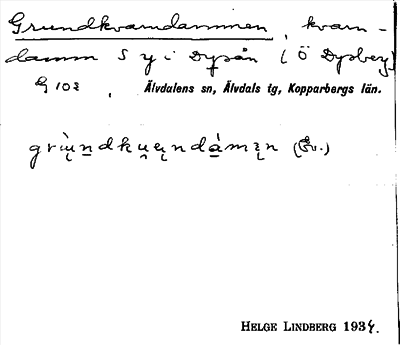 Grundkvarndammen, kvarn-
damm S y i Dysån (Ö Dysberg)
G 102, Älvdalens sn, Älvdals tg, Kopparbergs län.
(Ev.)
HELGE LINDBERG 1934.